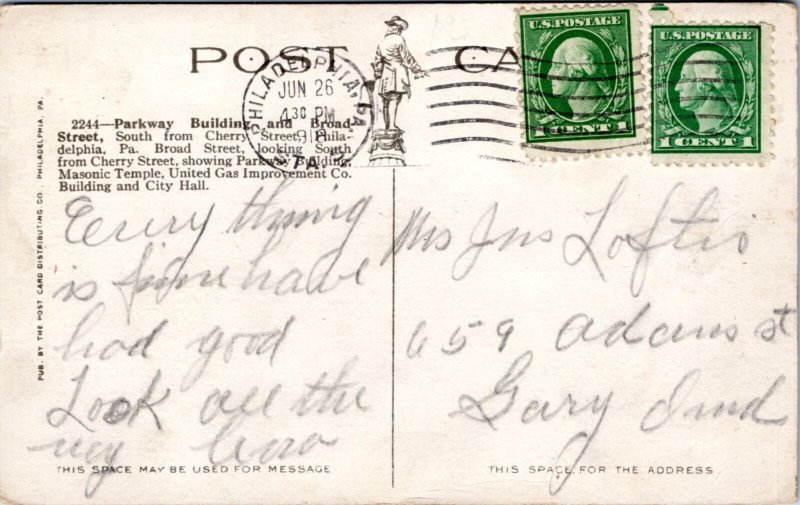 POST CA
U.S.POSTAGE
U.S.POSTAGE
1 CENT 1
1 CENT 1
PHILADELPHIA, PA.
JUN 26
4 30 PM
1918
STA.
2244—Parkway Building and Broad
Street, South from Cherry Street, Phila-
delphia, Pa. Broad Street, looking South
from Cherry Street, showing Parkway Building,
Masonic Temple, United Gas Improvement Co.
Building and City Hall.
PUB. BY THE POST CARD DISTRIBUTING CO., PHILADELPHIA, PA.
Every thing
is fine have
had good
Look all the
way
THIS SPACE MAY BE USED FOR MESSAGE
Mrs Jns Loftis
659 adams st
Gary Ind
THIS SPACE FOR THE ADDRESS